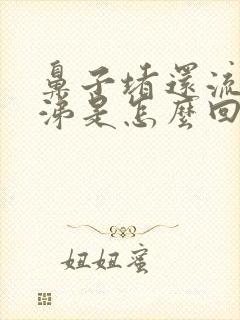 鼻子堵還流
涕是怎麼回
妞妞蜜